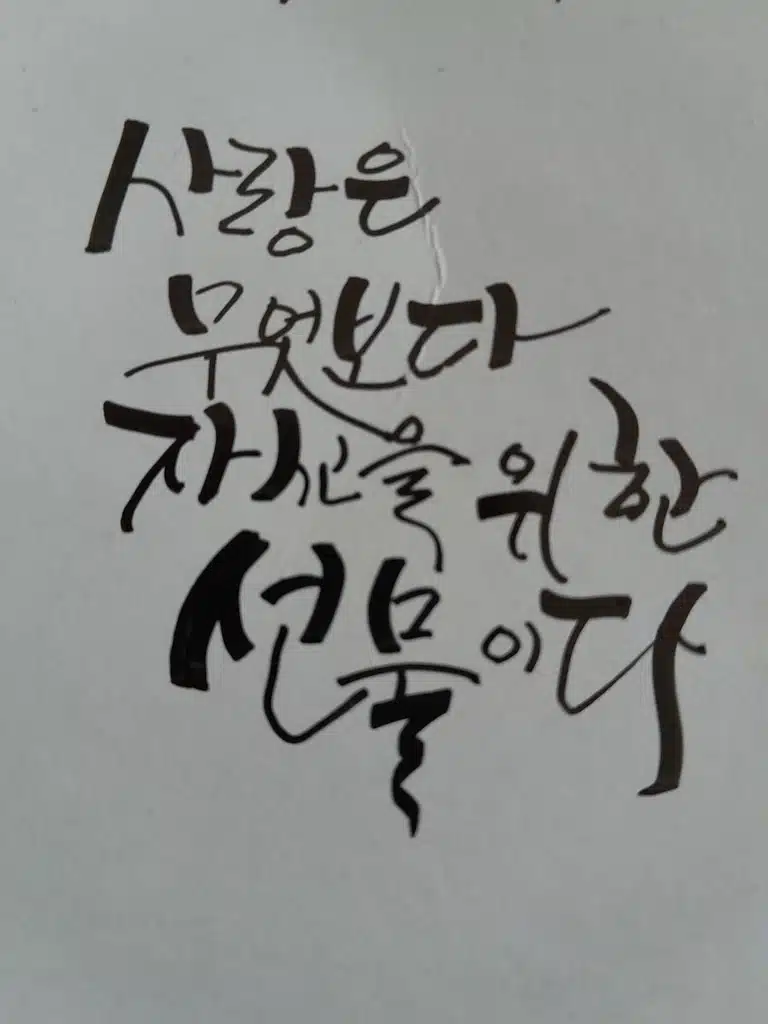 사랑은
무엇보다
자신을 위한
선물이다